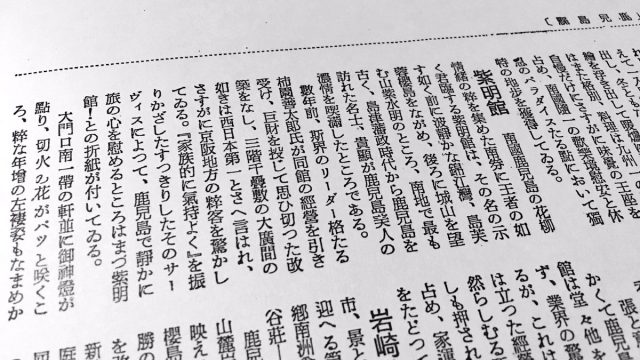 え、今
出し、文字通り九州一
繪を存して料理界の王座
はまた格別、これに慰安と休
自慢だけに南國隨一の歡樂
占め、南國隨一の歡樂
境のパラダイスたる點において獨
特の地歩を獲得してゐる。
紫明館
南國鹿兒島の花柳
情緒の粋を集めた南券に王者の如
く君臨する紫明館は、その名の示
す如く前に波靜かな錦江灣、島芙
蓉櫻島をながめ、後ろに城山を望
む山紫水明のところ、南地で最も
古く、島津藩政時代から鹿兒島を
訪れた名士、貴顯が鹿兒島美人の
濃情を堪滿したところである。
數年前、斯界のリーダー格たる
柿園善太郎氏が同館の經營を引き
受け、巨財を投じて思ひ切つた改
築をなし、三階千疊敷の大廣間の
如きは西日本第一とさへ言はれ、
さすがに京阪地方の粹客を驚かし
てゐる。『家族的に氣持よく』を振
りかざしたすつきりしたそのサー
ヴィスによつて、鹿兒島で靜かに
旅の心を慰めるところはまづ紫明
館!との折紙が付いてゐる。
大門口南一帶の軒並に御神燈が
點り、切火の花がパッと咲くこ
ろ、粹な年增の左褄姿もなまめか
張と
かくて鹿兒
館は堂々他
ず、業界の
るが、これ
は立つた經
然らしむる
しも押され
占め、家運
をたどつ
岩崎
市、景と
迎へる第
鄕南洲
谷莊―
山麓
映え
櫻島
勝の
新
庭